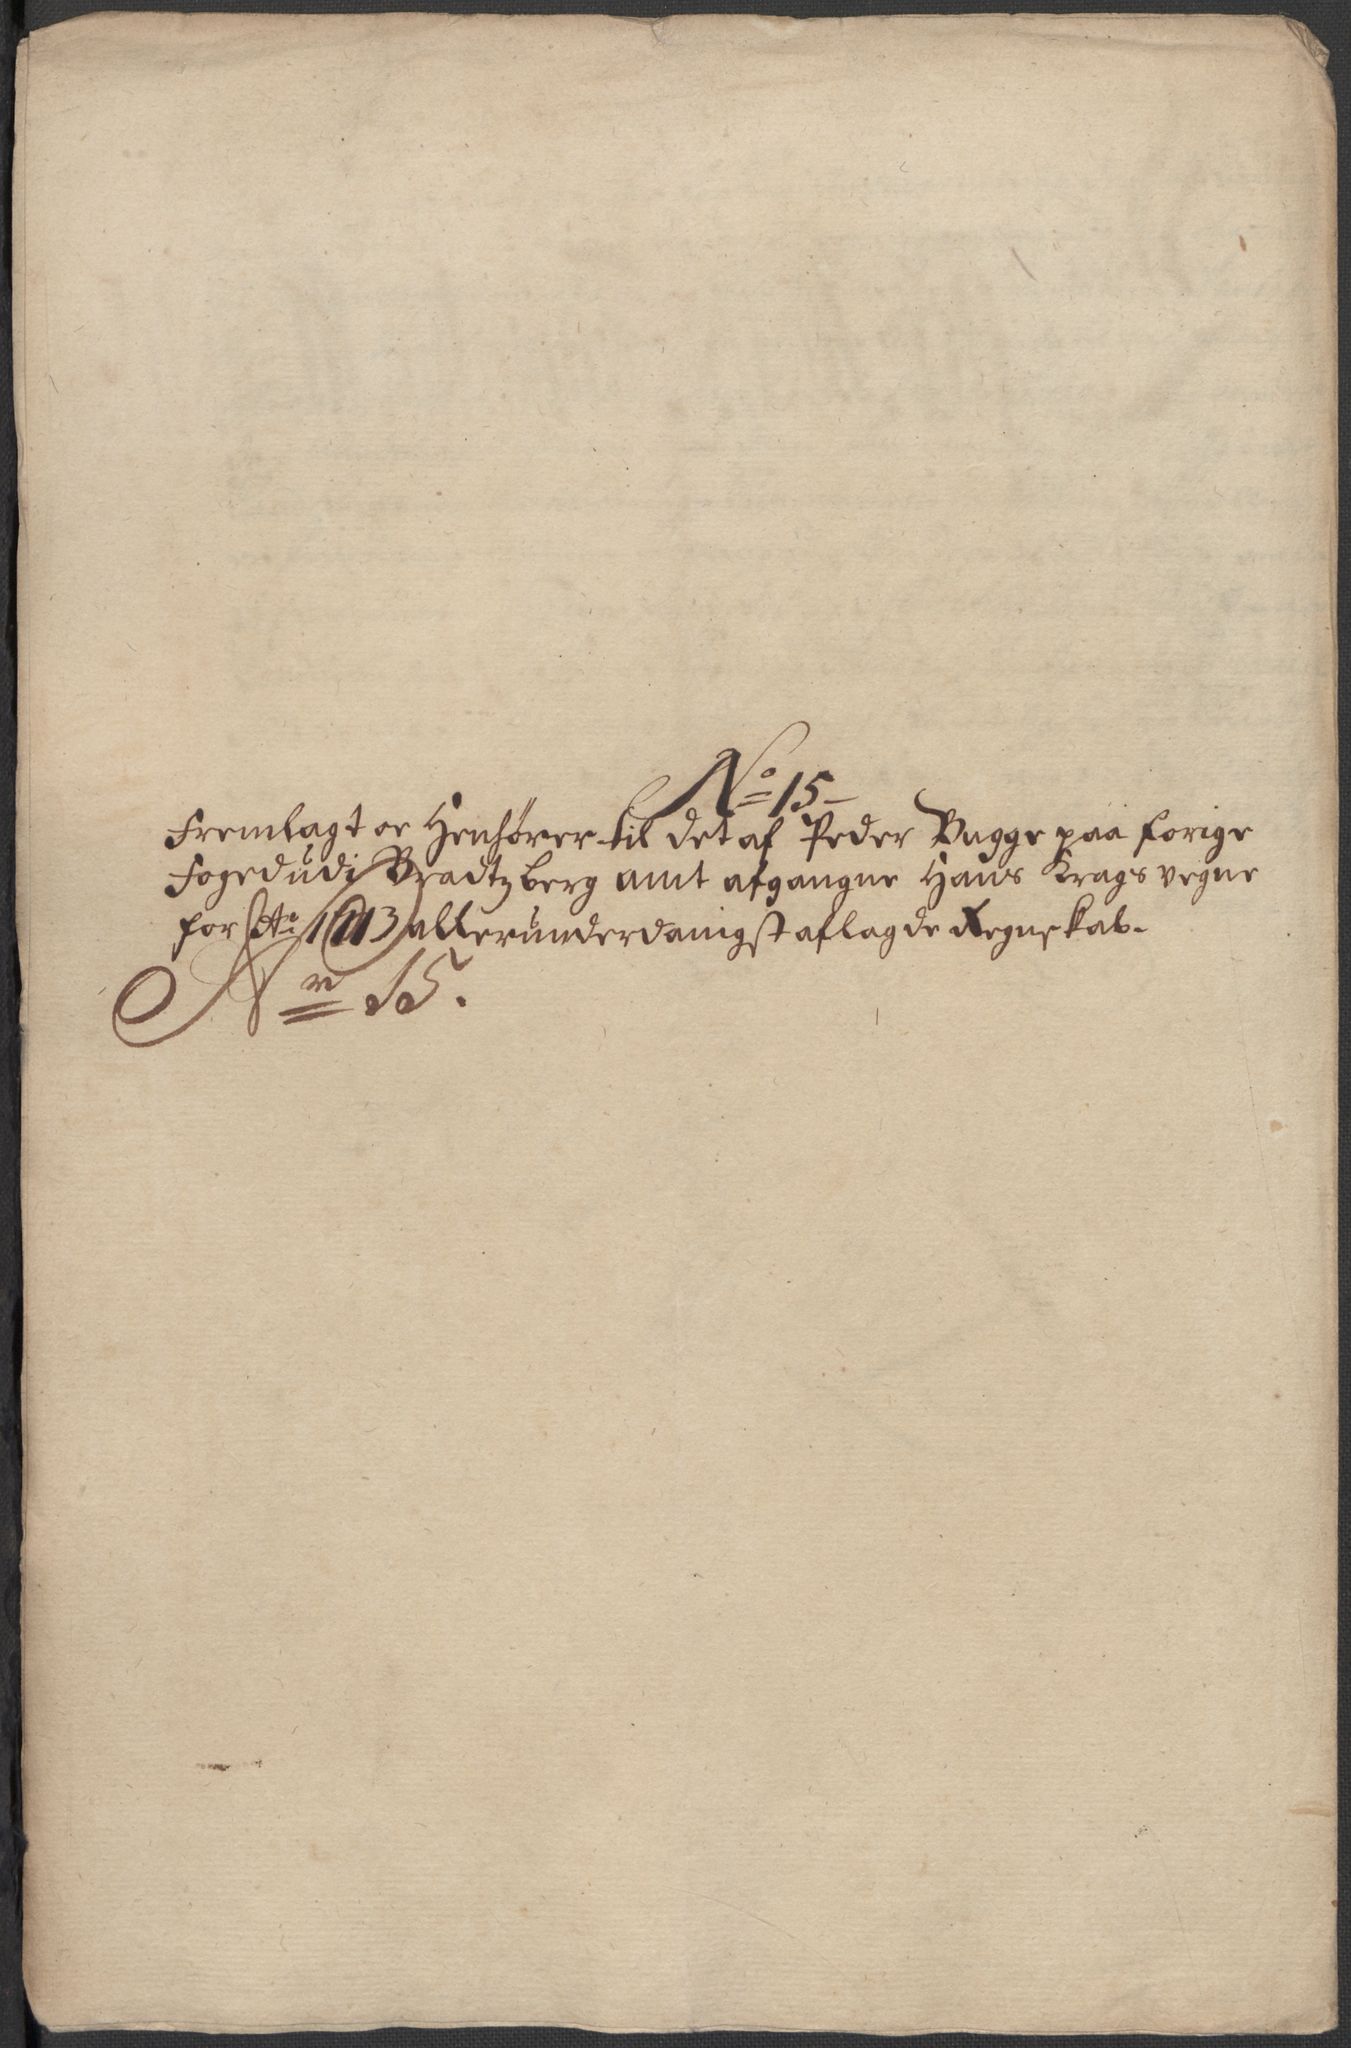 No 15
Fremlagt oc Henhører til det af Peder Bugge paa forige
Foged udi Bradtzberg amt afgangne Hans Krags vegne
for Ao 1713 allerunderdanigst aflagde Regnskab.
Nr 15.